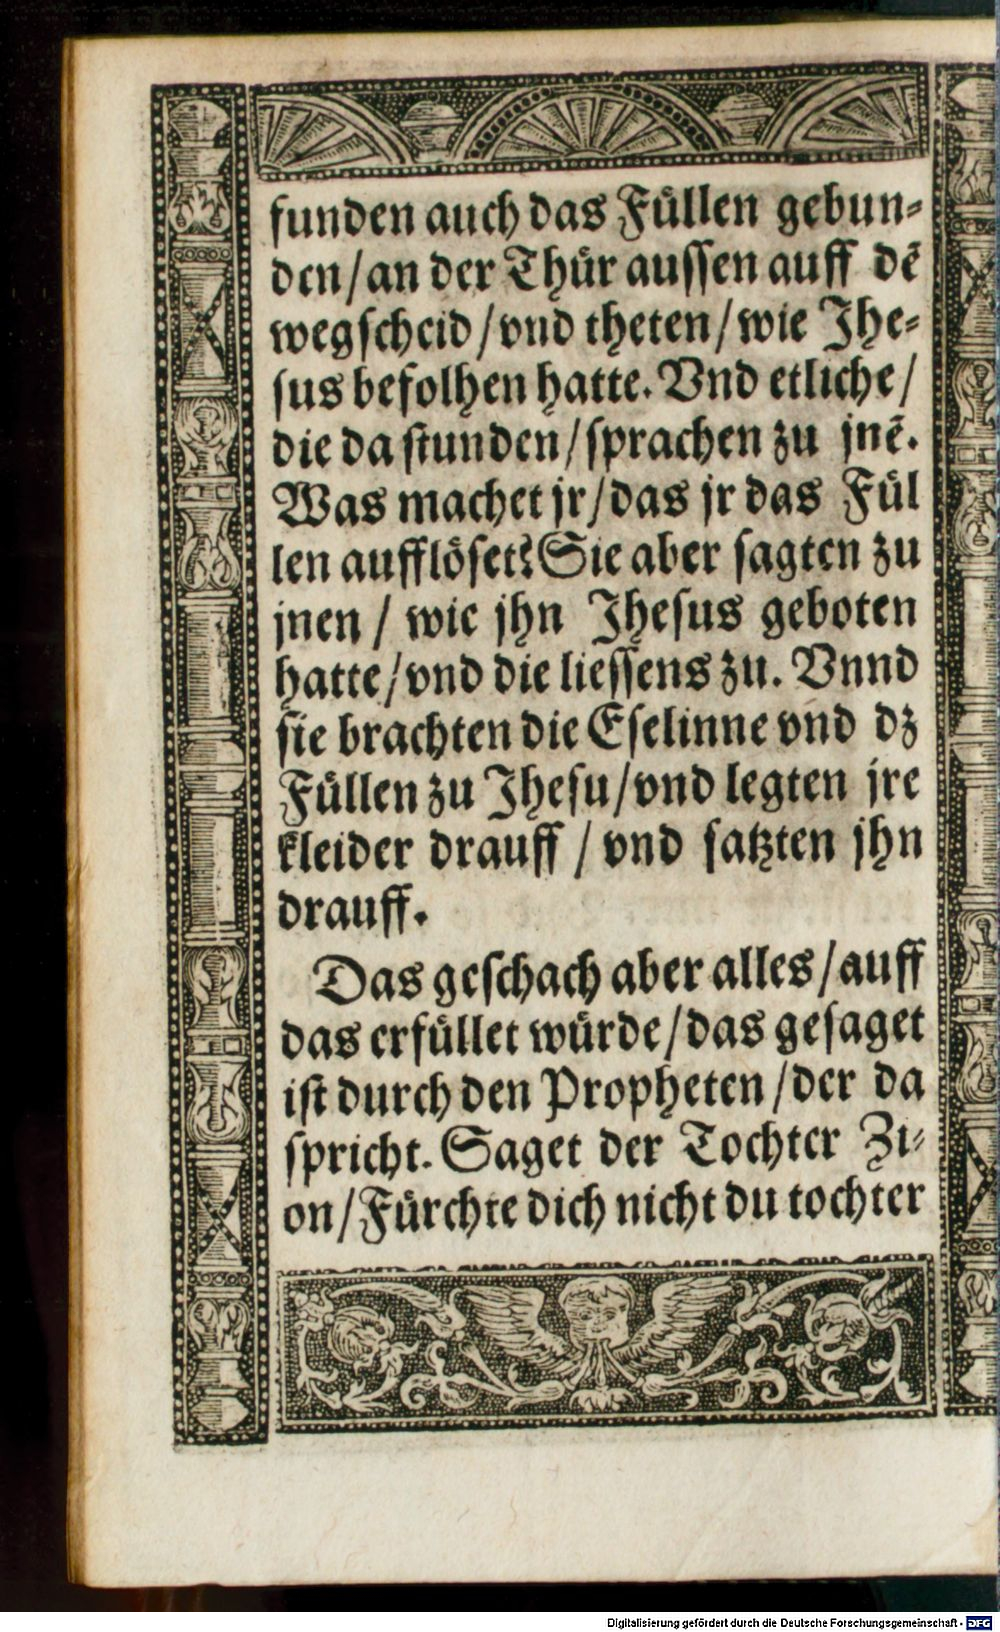 funden auch das Füllen gebun-
den/an der Thür aussen auff dē
wegscheid/vnd theten/wie Jhe-
sus befolhen hatte. Vnd etliche/
die da stunden/sprachen zu jnē.
Was machet jr/das jr das Fül
len aufflöset? Sie aber sagten zu
jnen / wie jhn Jhesus geboten
hatte/vnd die liessens zu. Vnnd
sie brachten die Eselinne vnd dz
Füllen zu Jhesu/vnd legten jre
kleider drauff / vnd satzten jhn
drauff.
Das geschach aber alles/auff
das erfüllet würde/das gesaget
ist durch den Propheten/der da
spricht. Saget der Tochter Zi-
on/Fürchte dich nicht du tochter
Digitalisierung gefördert durch die Deutsche Forschungsgemeinschaft - DFG